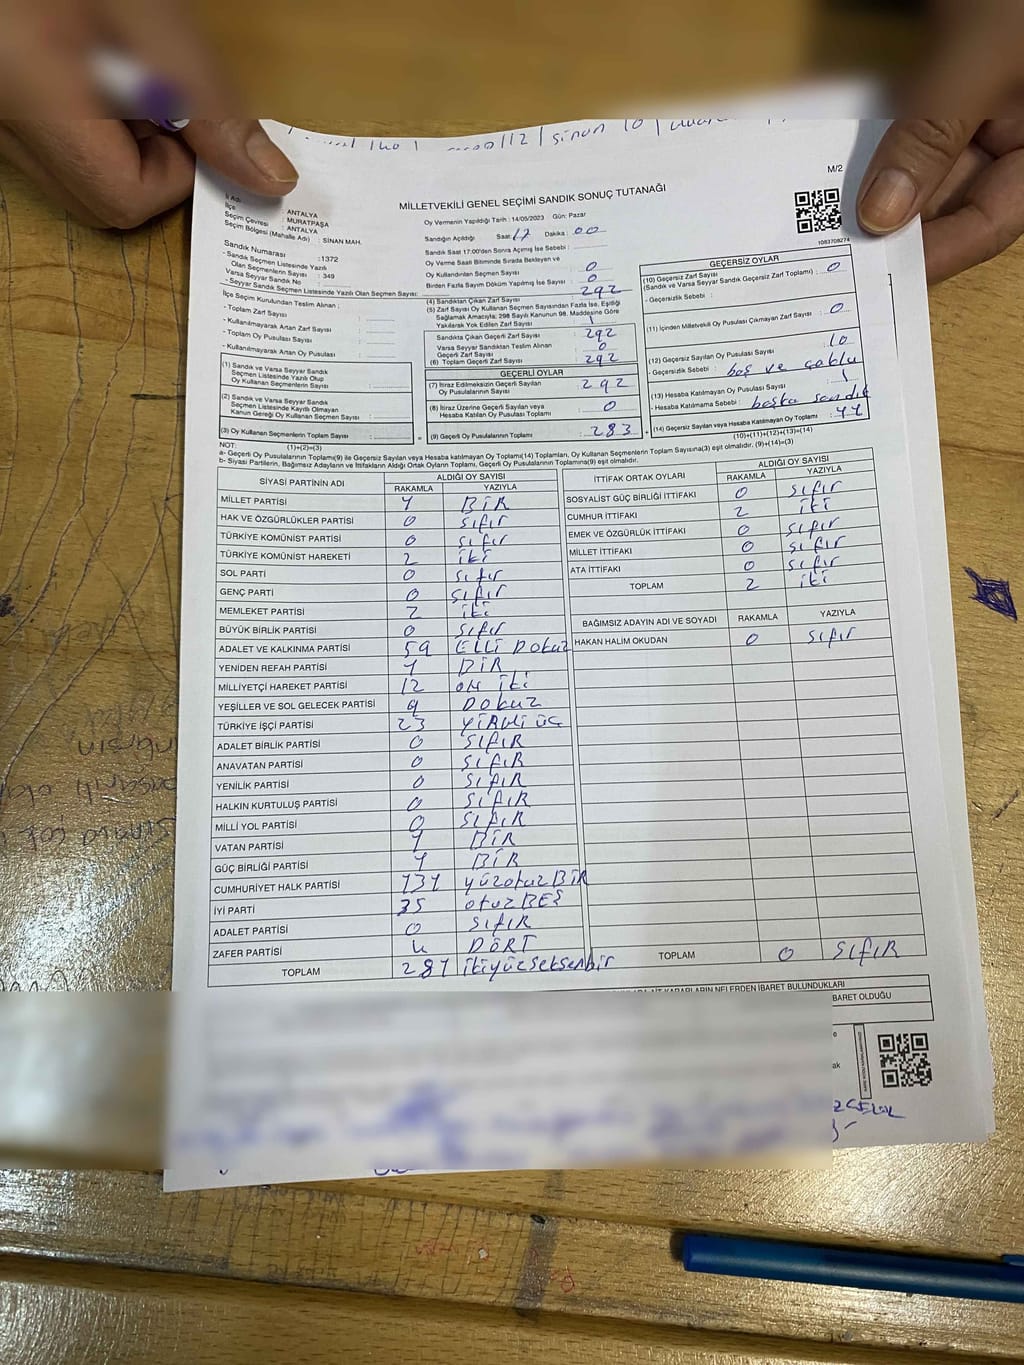 sinan 10
M/2
MİLLETVEKİLİ GENEL SEÇİMİ SANDIK SONUÇ TUTANAĞI
İl Adı : ANTALYA
İlçe : MURATPAŞA
Seçim Çevresi : ANTALYA
Seçim Bölgesi (Mahalle Adı) : SİNAN MAH.
Oy Vermenin Yapıldığı Tarih : 14/05/2023 Gün: Pazar
Sandığın Açıldığı Saat: 17 Dakika : 00
Sandık Saat 17:00'den Sonra Açılmış İse Sebebi :
Oy Verme Saati Bitiminde Sırada Bekleyen ve
Oy Kullandırılan Seçmen Sayısı : 0
Birden Fazla Sayım Döküm Yapılmış İse Sayısı : 0
1083708274
Sandık Numarası :1372
- Sandık Seçmen Listesinde Yazılı
Olan Seçmenlerin Sayısı : 349
Varsa Seyyar Sandık No :
- Seyyar Sandık Seçmen Listesinde Yazılı Olan Seçmen Sayısı:
İlçe Seçim Kurulundan Teslim Alınan :
- Toplam Zarf Sayısı :
- Kullanılmayarak Artan Zarf Sayısı :
- Toplam Oy Pusulası Sayısı :
- Kullanılmayarak Artan Oy Pusulası
(1) Sandık ve Varsa Seyyar Sandık
Seçmen Listesinde Yazılı Olup
Oy Kullanan Seçmenlerin Sayısı :
(2) Sandık ve Varsa Seyyar Sandık
Seçmen Listesinde Kayıtlı Olmayan
Kanun Gereği Oy Kullanan Seçmen Sayısı :
(3) Oy Kullanan Seçmenlerin Toplam Sayısı :
(1)+(2)=(3)
(4) Sandıktan Çıkan Zarf Sayısı : 292
(5) Zarf Sayısı Oy Kullanan Seçmen Sayısından Fazla İse, Eşitliği
Sağlamak Amacıyla; 298 Sayılı Kanunun 98. Maddesine Göre
Yakılarak Yok Edilen Zarf Sayısı :
Sandıkta Çıkan Geçerli Zarf Sayısı : 292
Varsa Seyyar Sandıktan Teslim Alınan
Geçerli Zarf Sayısı : 0
(6) Toplam Geçerli Zarf Sayısı : 292
GEÇERLİ OYLAR
(7) İtiraz Edilmeksizin Geçerli Sayılan
Oy Pusulalarının Sayısı : 292
(8) İtiraz Üzerine Geçerli Sayılan veya
Hesaba Katılan Oy Pusulası Toplamı : 0
(9) Geçerli Oy Pusulalarının Toplamı : 283
GEÇERSİZ OYLAR
(10) Geçersiz Zarf Sayısı
(Sandık ve Varsa Seyyar Sandık Geçersiz Zarf Toplamı) : 0
- Geçersizlik Sebebi :
(11) İçinden Milletvekili Oy Pusulası Çıkmayan Zarf Sayısı : 0
(12) Geçersiz Sayılan Oy Pusulası Sayısı : 10
- Geçersizlik Sebebi : boş ve çoklu
(13) Hesaba Katılmayan Oy Pusulası Sayısı : 1
- Hesaba Katılmama Sebebi : başka sandık
(14) Geçersiz Sayılan veya Hesaba Katılmayan Oy Toplamı :
(10)+(11)+(12)+(13)=(14)
NOT:
a- Geçerli Oy Pusulalarının Toplamı(9) ile Geçersiz Sayılan veya Hesaba katılmayan Oy Toplamı(14) Toplamları, Oy Kullanan Seçmenlerin Toplam Sayısına(3) eşit olmalıdır. (9)+(14)=(3)
b- Siyasi Partilerin, Bağımsız Adayların ve İttifakların Aldığı Ortak Oyların Toplamı, Geçerli Oy Pusulalarının Toplamına(9) eşit olmalıdır.
SİYASİ PARTİNİN ADI ALDIĞI OY SAYISI
RAKAMLA YAZIYLA
MİLLET PARTİSİ 1 BİR
HAK VE ÖZGÜRLÜKLER PARTİSİ 0 sıfır
TÜRKİYE KOMÜNİST PARTİSİ 0 sıfır
TÜRKİYE KOMÜNİST HAREKETİ 2 iki
SOL PARTİ 0 sıfır
GENÇ PARTİ 0 sıfır
MEMLEKET PARTİSİ 2 iki
BÜYÜK BİRLİK PARTİSİ 0 sıfır
ADALET VE KALKINMA PARTİSİ 59 ELLİ DOKUZ
YENİDEN REFAH PARTİSİ 1 BİR
MİLLİYETÇİ HAREKET PARTİSİ 12 on iki
YEŞİLLER VE SOL GELECEK PARTİSİ 9 DOKUZ
TÜRKİYE İŞÇİ PARTİSİ 23 YİRMİ üç
ADALET BİRLİK PARTİSİ 0 SIFIR
ANAVATAN PARTİSİ 0 SIFIR
YENİLİK PARTİSİ 0 SIFIR
HALKIN KURTULUŞ PARTİSİ 0 SIFIR
MİLLİ YOL PARTİSİ 0 SIFIR
VATAN PARTİSİ 1 BİR
GÜÇ BİRLİĞİ PARTİSİ 1 BİR
CUMHURİYET HALK PARTİSİ 131 yüzotuzBİR
İYİ PARTİ 35 otuzBEŞ
ADALET PARTİSİ 0 SIFIR
ZAFER PARTİSİ 4 DÖRT
TOPLAM 281 ikiyüzseksenbir
İTTİFAK ORTAK OYLARI ALDIĞI OY SAYISI
RAKAMLA YAZIYLA
SOSYALİST GÜÇ BİRLİĞİ İTTİFAKI 0 sıfır
CUMHUR İTTİFAKI 2 iki
EMEK VE ÖZGÜRLÜK İTTİFAKI 0 sıfır
MİLLET İTTİFAKI 0 sıfır
ATA İTTİFAKI 0 sıfır
TOPLAM 2 iki
BAĞIMSIZ ADAYIN ADI VE SOYADI RAKAMLA YAZIYLA
HAKAN HALİM OKUDAN 0 sıfır
TOPLAM 0 SIFIR
KARARLARIN NELERDEN İBARET BULUNDUKLARI
BARET OLDUĞU